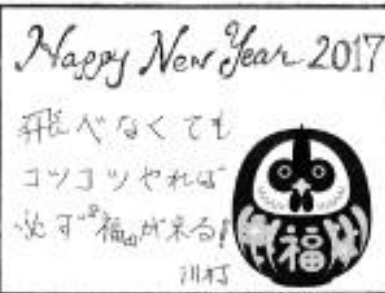 Happy New Year 2017
飛べなくても
コツコツやれば
必ず"福"が来る!
川村
福